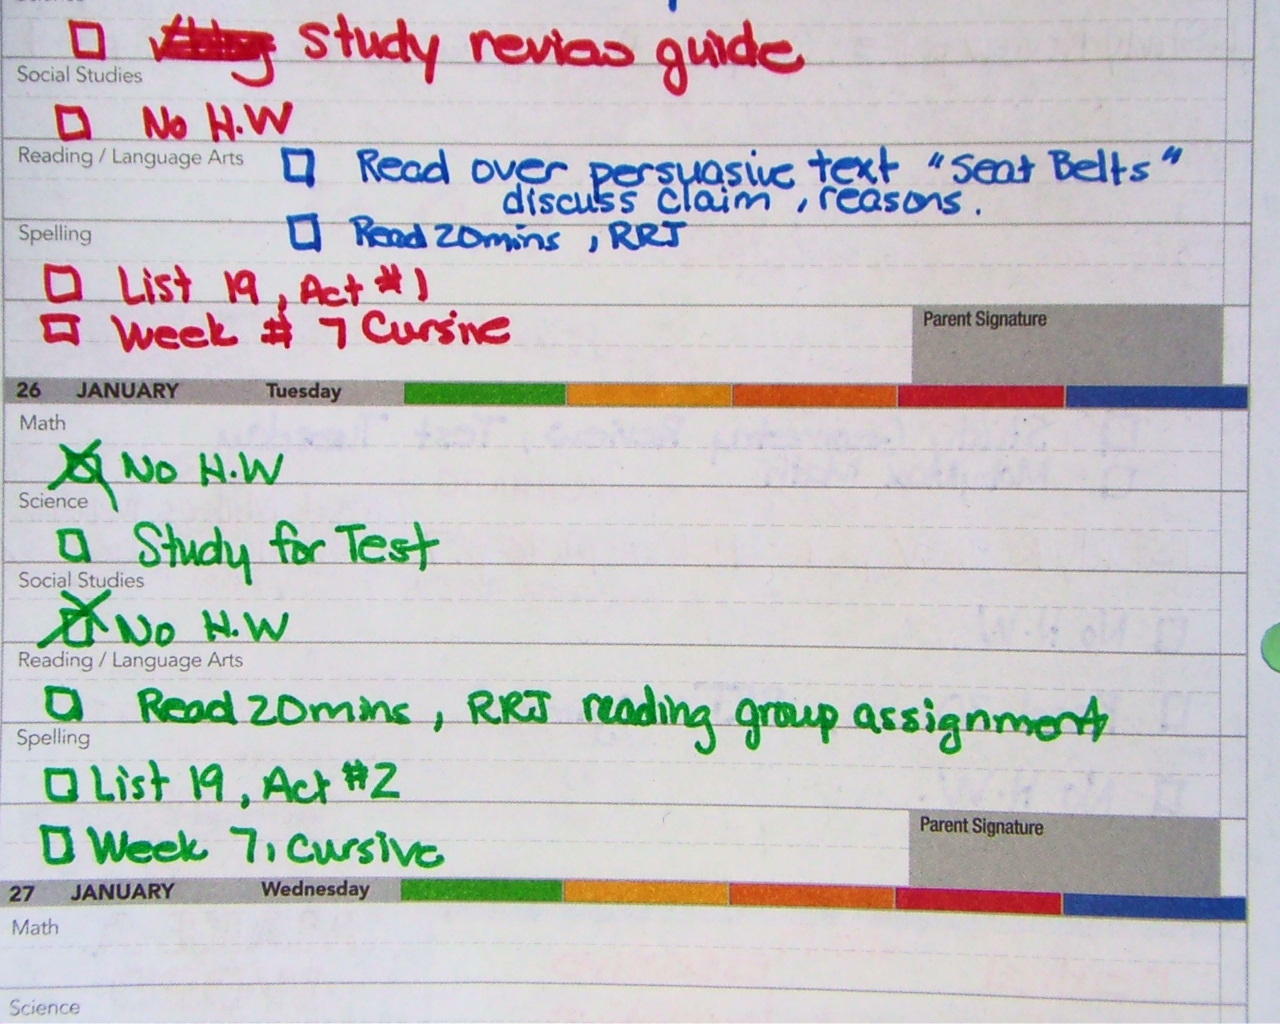 Study review guide
Social Studies
No H.W
Reading / Language Arts
Read over persuasive text "Seat Belts"
discuss claim, reasons.
Spelling
Read 20mins, RRJ
List 19, Act #1
Week # 7 Cursive
Parent Signature
26 JANUARY Tuesday
Math
No H.W
Science
Study for Test
Social Studies
No H.W
Reading / Language Arts
Read 20mins, RRJ reading group assignment
Spelling
List 19, Act #2
Week 7, Cursive
Parent Signature
27 JANUARY Wednesday
Math
Science